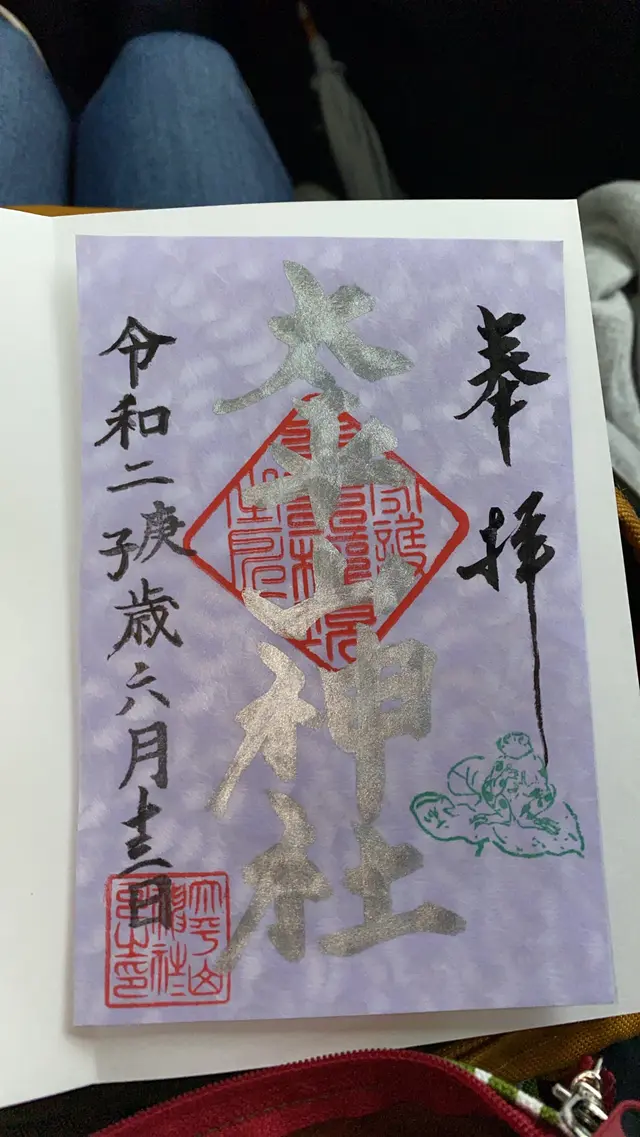 奉拝
太平山神社
令和二庚子歳六月十三日